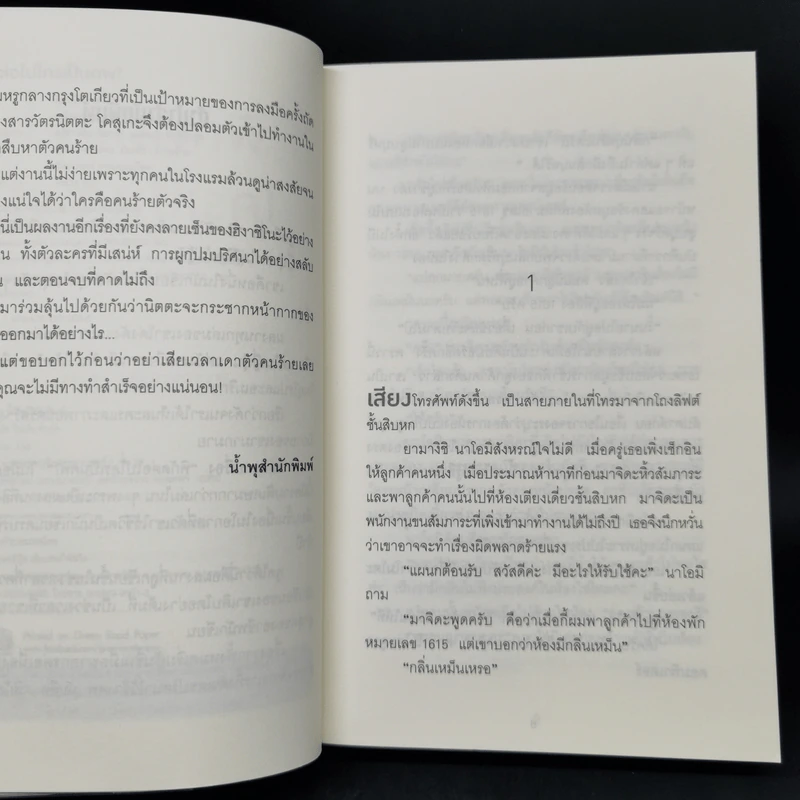 มหรูกลางกรุงโตเกียวที่เป็นเป้าหมายของการลงมือครั้งถัด
งสารวัตรนิตตะ โคสุเกะจึงต้องปลอมตัวเข้าไปทำงานใน
สืบหาตัวคนร้าย
แต่งานนี้ไม่ง่ายเพราะทุกคนในโรงแรมล้วนดูน่าสงสัยจน
งแน่ใจได้ว่าใครคือคนร้ายตัวจริง
นี่เป็นผลงานอีกเรื่องที่ยังคงลายเซ็นของฮิงาชิโนะไว้อย่าง
น ทั้งตัวละครที่มีเสน่ห์ การผูกปมปริศนาได้อย่างสลับ
น และตอนจบที่คาดไม่ถึง
มาร่วมลุ้นไปด้วยกันว่านิตตะจะกระชากหน้ากากของ
ออกมาได้อย่างไร...
แต่ขอบอกไว้ก่อนว่าอย่าเสียเวลาเดาตัวคนร้ายเลย
คุณจะไม่มีทางทำสำเร็จอย่างแน่นอน!
น้ำพุสำนักพิมพ์
1
เสียงโทรศัพท์ดังขึ้น เป็นสายภายในที่โทรมาจากโถงลิฟต์
ชั้นสิบหก
ยามางิชิ นาโอมิสังหรณ์ใจไม่ดี เมื่อครู่เธอเพิ่งเช็กอิน
ให้ลูกค้าคนหนึ่ง เมื่อประมาณห้านาทีก่อนมาจิดะหิ้วสัมภาระ
และพาลูกค้าคนนั้นไปที่ห้องเตียงเดี่ยวชั้นสิบหก มาจิดะเป็น
พนักงานขนสัมภาระที่เพิ่งเข้ามาทำงานได้ไม่ถึงปี เธอจึงนึกหวั่น
ว่าเขาอาจจะทำเรื่องผิดพลาดร้ายแรง
“แผนกต้อนรับ สวัสดีค่ะ มีอะไรให้รับใช้คะ” นาโอมิ
ถาม
“มาจิดะพูดครับ คือว่าเมื่อกี้ผมพาลูกค้าไปที่ห้องพัก
หมายเลข 1615 แต่เขาบอกว่าห้องมีกลิ่นเหม็น”
“กลิ่นเหม็นเหรอ”